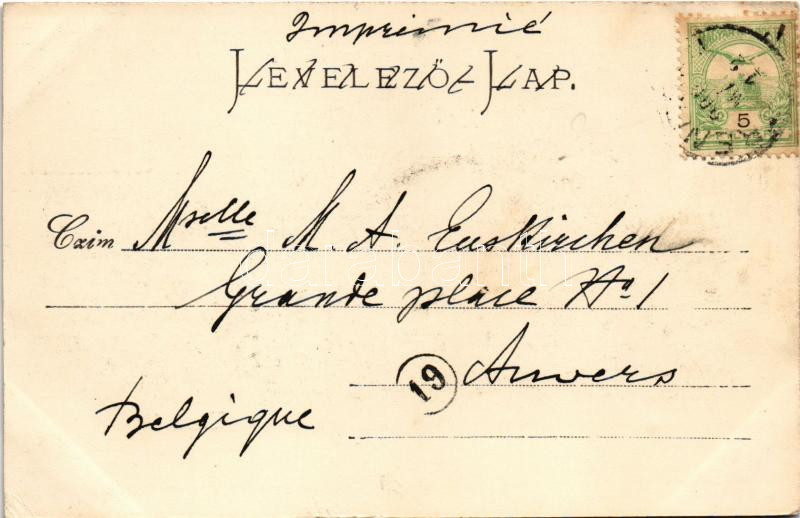 Imprimié
LEVELEZŐ-LAP.
5
Czim Mselle M A. Euskirchen
Grande place No 1
19 Anvers
Belgique
darabanth